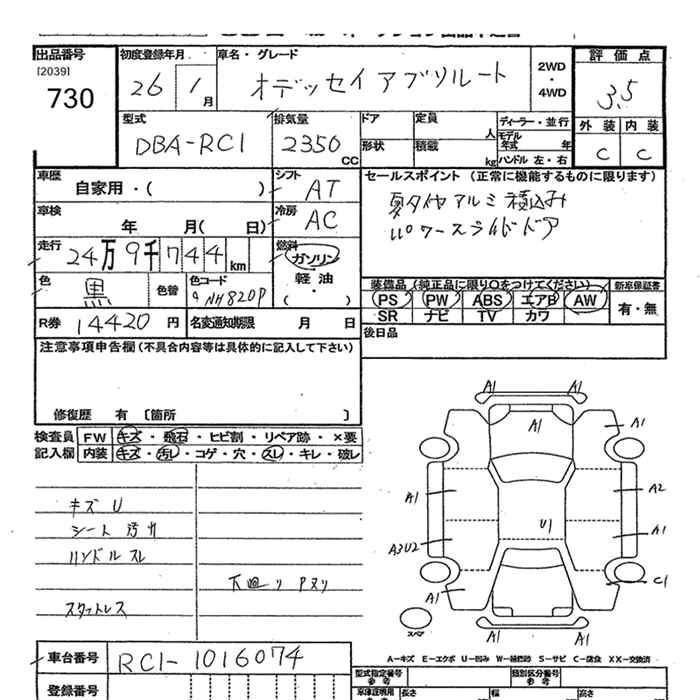 出品番号
[2039]
730
初度登録年月
26 1月
車名・グレード
オデッセイ アブソルート
2WD
・
4WD
評価点
3.5
外装 内装
C C
型式
DBA-RC1
排気量
2350
CC
ドア 定員 人
形状 積載 kg
ディーラー・並行
モデル年式 年
ハンドル 左・右
車歴
自家用・( )
シフト
AT
車検
年 月( 日)
冷房
AC
走行
24万9千744km
燃料
ガソリン
軽油
( ・ )
色
黒
色替
色コード
NH820P
R券 14420 円
名変通知期限 月 日
セールスポイント (正常に機能するものに限ります)
夏タイヤアルミ積込み
パワースライドドア
装備品 (純正品に限り○をつけてください)
新車保証書
PS PW ABS エアB AW
SR ナビ TV カワ
有・無
後日品
注意事項申告欄 (不具合内容等は具体的に記入して下さい)
修復歴 有 〔箇所 〕
検査員
記入欄
FW キズ・飛石・ヒビ割・リペア跡・×要
内装 キズ・汚れ・コゲ・穴・スレ・キレ・破レ
キズ U
シート 汚れ
ハンドル スレ
下廻り Pヌリ
スタットレス
A1 A1
A1 A1
A1 A2
U1 A1
A3U2
C1
A1
スペア
A1 A1
A-キズ E-エクボ U-凹み W-補修跡 S-サビ C-腐食 XX-交換済
車台番号
RC1-1016074
登録番号
型式指定番号
参考
類別区分番号
参考
車庫証明用
参考
長さ 幅 高さ